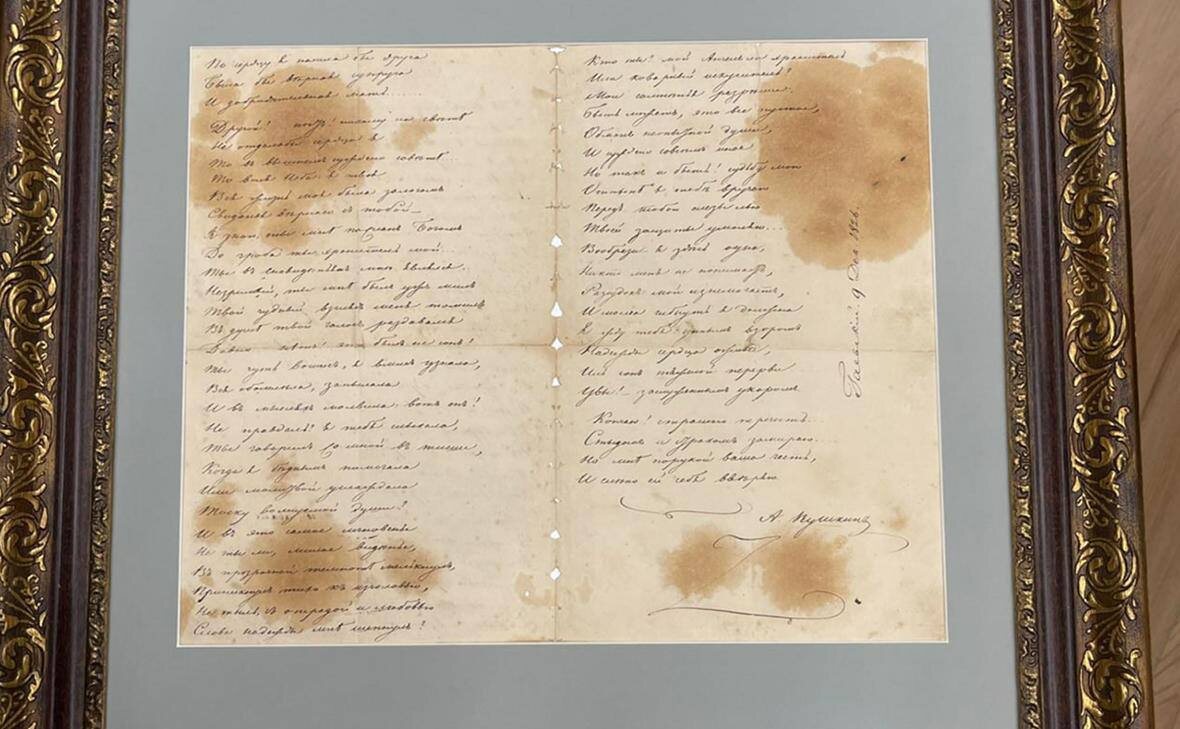 По сердцу я нашла бы друга
Была бы вѣрная супруга
И добродѣтельная мать......
Другой! нѣтъ! никому на свѣтѣ
Не отдала бы сердца я
То въ вышнемъ суждено совѣтѣ...
То воля Неба: я твоя
Вся жизнь моя была залогомъ
Свиданья вѣрнаго съ тобой_
Я знаю, ты мнѣ посланъ Богомъ
До гроба ты хранитель мой...
Ты въ сновидѣньяхъ мнѣ являлся.
Незримый, ты мнѣ былъ ужъ милъ
Твой чудный взглядъ меня томилъ
Въ душѣ твой голосъ раздавался
Давно нѣтъ! это былъ не сонъ!
Ты чуть вошелъ, я вмигъ узнала,
Вся обомлѣла, запылала
И въ мысляхъ молвила: вотъ онъ!
Не правдаль? я тебя слыхала,
Ты говорилъ со мной въ тиши,
Когда я бѣднымъ помогала
Или молитвой услаждала
Тоску волнуемой души?
И въ это самое мгновенье
Не ты ли, милое видѣнье,
Въ прозрачной темнотѣ мелькнулъ,
Приникнулъ тихо къ изголовью,
Не тыль, съ отрадой и любовью
Слова надежды мнѣ шепнулъ?
Кто ты? мой Ангелъ ли хранитель
Или коварный искуситель?
Мои сомнѣнья разрѣши.
Быть можетъ, это все пустое,
Обманъ неопытной души,
И суждено совсѣмъ иное
Но такъ и быть! судьбу мою
Отнынѣ я тебѣ вручаю
Передъ тобой слезы лью
Твоей защиты умоляю...
Вообрази я здѣсь одна,
Никто меня не понимаетъ,
Разсудокъ мой изнемогаетъ,
И молча гибнуть я должна
Я жду тебя: единымъ взоромъ
Надежды сердца оживи,
Иль сонъ тяжелой перерви
Увы! _ заслуженнымъ укоромъ
Кончаю! страшно перечесть...
Стыдомъ и страхомъ замираю...
Но мнѣ порукой ваша честь,
И смѣло ей себя ввѣряю
А Пушкинъ
9 Дек 1826.